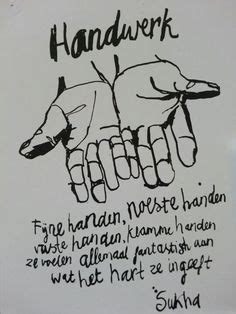 Handwerk
Fijne handen, noeste handen
vaste handen, klamme handen
ze voelen allemaal fantastisch aan
wat het hart ze ingeeft
Sukha